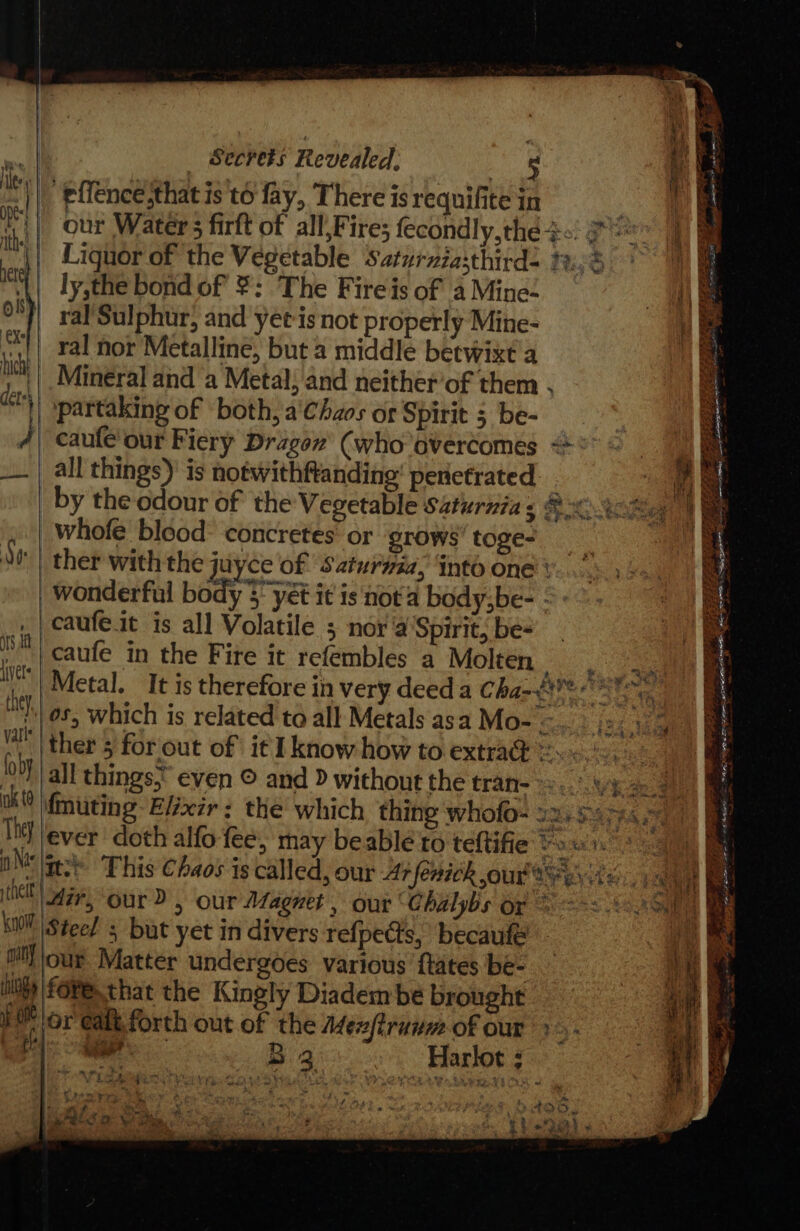 Secrets Revealed. 5
eſſence; that is to ſay, There is requiſite in
our Water; firſt of all, Fire; ſecondly, the
Liquor of the Vegetable Saturnia; third-
ly, the bond of ☿: The Fire is of a Mine-
ral Sulphur, and yet is not properly Mine-
ral nor Metalline, but a middle betwixt a
Mineral and a Metal, and neither of them
partaking of both, a Chaos or Spirit; be-
cauſe our Fiery Dragon (who overcomes
all things) is notwithſtanding penetrated
by the odour of the Vegetable Saturnia;
whoſe blood concretes or grows toge-
ther with the juyce of Saturnia, into one
wonderful body; yet it is not a body, be-
cauſe it is all Volatile; nor a Spirit, be-
cauſe in the Fire it reſembles a Molten
Metal. It is therefore in very deed a Cha-
os, which is related to all Metals as a Mo-
ther; for out of it I know how to extract
all things, even ☉ and ☽ without the tran-
ſmuting Elixir: the which thing whoſo-
ever doth alſo ſee, may be able to teſtifie
it. This Chaos is called, our Arſenick, our
Air, our ☽, our Magnet, our Chalybs or
Steel; but yet in divers reſpects, becauſe
our Matter undergoes various ſtates be-
fore that the Kingly Diadem be brought
or caſt forth out of the Menſtruum of our
B 3 Harlot;